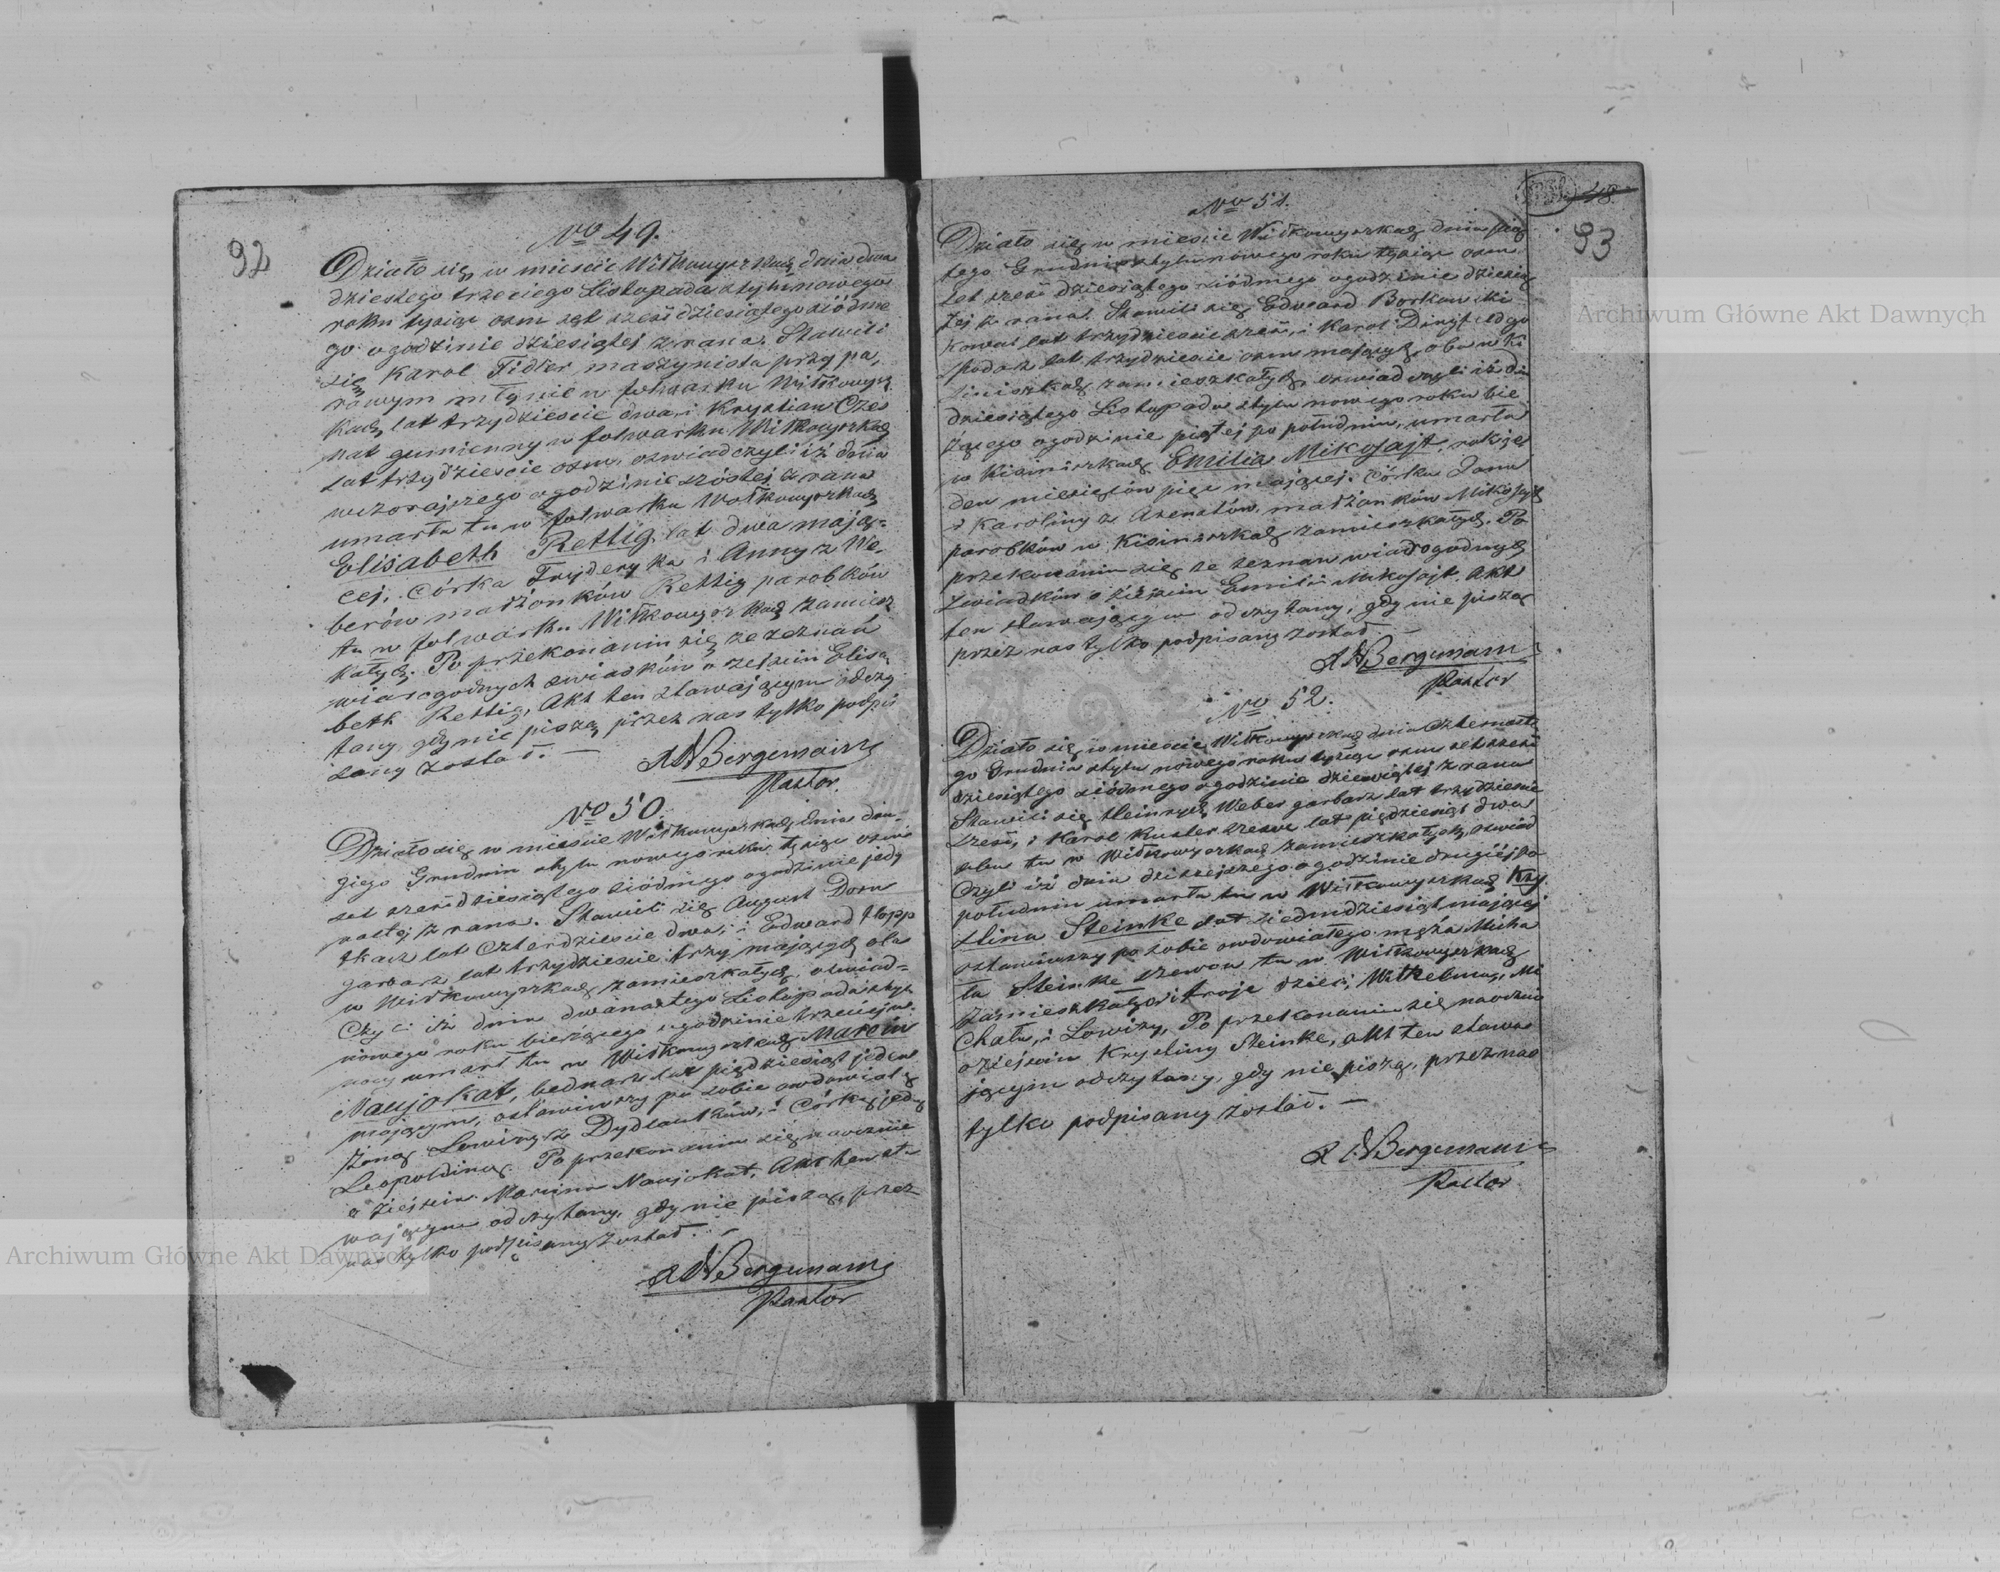 92
No 49.
Działo się w mieście Wiłkowyszkach dnia dwu
dziestego trzeciego Listopada stylu nowego
roku tysiąc osm set sześćdziesiątego siódme
go ogodzinie dziesiątej zrana. Stawili
się Karol Fidler maszynista przy pa,
rowym młynie w folwarku Wiłkowysz
kach lat trzydzieście dwa i Krystian
gumienny w folwarku Wiłkowyszkach
lat trzydzieście osm, oswiadczyli iż dnia
wczorajszego ogodzinie szóstej z rana
umarła tu w folwarku Wiłkowyszkach
Elisabeth Rettig, lat dwa mają=
cej, Córka Fryderyka i Anny z We,
berów małżonków Rettig parobków
tu w folwarku Wiłkowyszkach zamiesz
kałych. Po przekonaniu się ze zeznań
wiarogodnych swiadków o zejściu Elisa,
beth Rettig, Akt ten stawającym odczy
tany, gdy nie piszą, przez nas tylko podpi
sany został. —
Bergemann
Pastor.
No 50.
Działo się w mieście Wiłkowyszkach dnia dru-
giego Grudnia stylu nowego roku tysiąc osm
set sześćdziesiątego siódmego ogodzinie jedy
nastej z rana. Stawili się August Dorn
tkacz lat czterdzieście dwa, i Edward Hopp
garbarz lat trzydzieście trzy mających oba
w Wiłkowyszkach zamieszkałych, oswiad=
czyli iż dnia dwunastego Listopada stylu
nowego roku bieżącego ogodzinie trzeciej w
nocy umarł tu w Wiłkowyszkach Marcin
Naujokat, bednarz lat pięćdziesiąt jeden
mającym, zostawiwszy po sobie owdowiałą
żonę Lowizę z Dydlautków, i Córkę jedną
Leopoldinę. Po przekonaniu się naocznie
o zejściu Marcina Naujokat, Akt ten sta
wającym odczytany, gdy nie piszą, przez
nas tylko podpisany został. —
Bergemann
Pastor
48
93
No 51.
Działo się w mieście Wiłkowyszkach dnia pią
tego Grudnia stylu nowego roku tysiąc osm
set sześćdziesiątego siódmego ogodzinie dziesią
tej z rana. Stawili się Edward Borkowski
kowal lat trzydzieście sześć, i Karol go
spodarz lat trzydzieście osm mających, oba w Ki
siniszkach zamieszkałych, oswiadczyli iż dnia
dziesiątego Listopada stylu nowego roku bie
żącego ogodzinie piątej po południu, umarła
w Kisiniszkach Emilia Mikoſajt, rok je
den miesięców pięć mającej. Córka Jana
i Karoliny z Azenatów, małżonków Mikoſajt
parobków w Kisiniszkach zamieszkałych. Po
przekonaniu się ze zeznań wiarogodnych
swiadków o zejściu Emilii Mikoſajt, Akt
ten stawającym odczytany, gdy nie piszą
przez nas tylko podpisany został —
Bergemann
Pastor
No 52.
Działo się w mieście Wiłkowyszkach dnia czternaste
go Grudnia stylu nowego roku tysiąc osm set sześć
dziesiątego siódmego ogodzinie dziewiątej z rana
Stawili się Heinrych Weber garbarz lat trzydzieście
sześć, i Karol Kuster szewc lat pięćdziesiąt dwa
oba tu w Wiłkowyszkach zamieszkałych, oswiad
czyli iż dnia dzisiejszego ogodzinie drugiéj po
południu umarła tu w Wiłkowyszkach Kry
stina Steinke lat siedmdziesiąt mającej
zostawiwszy po sobie owdowiałego męża Micha
ła Steinke szewca tu w Wiłkowyszkach
zamieszkałego i troje dzieci, Wilhelma, Mi
chała, i Lowizy. Po przekonaniu się naocznie
o zejściu Krystiny Steinke, akt ten stawa
jącym odczytany, gdy nie piszą, przez nas
tylko podpisany został. —
Bergemann
Pastor
Archiwum Główne Akt Dawnych
Archiwum Główne Akt Dawnych